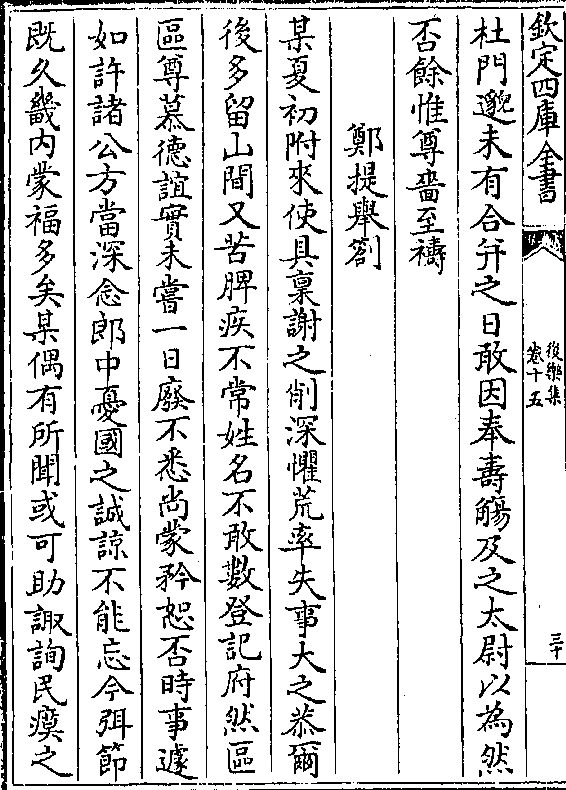 欽定四庫全書
後樂集
卷十五
三十
杜門邈未有合并之日敢因奉壽觴及之太尉以為然
否餘惟尊嗇至禱
鄭提舉劄
某夏初附來使具稟謝之削深懼荒率失事大之恭爾
後多留山間又苦脾疾不常姓名不敢數登記府然區
區尊慕德誼實未嘗一日廢不悉尚蒙矜恕否時事遽
如許諸公方當深念郎中憂國之誠諒不能忘今弭節
既久畿内蒙福多矣某偶有所聞或可助諏詢民瘼之